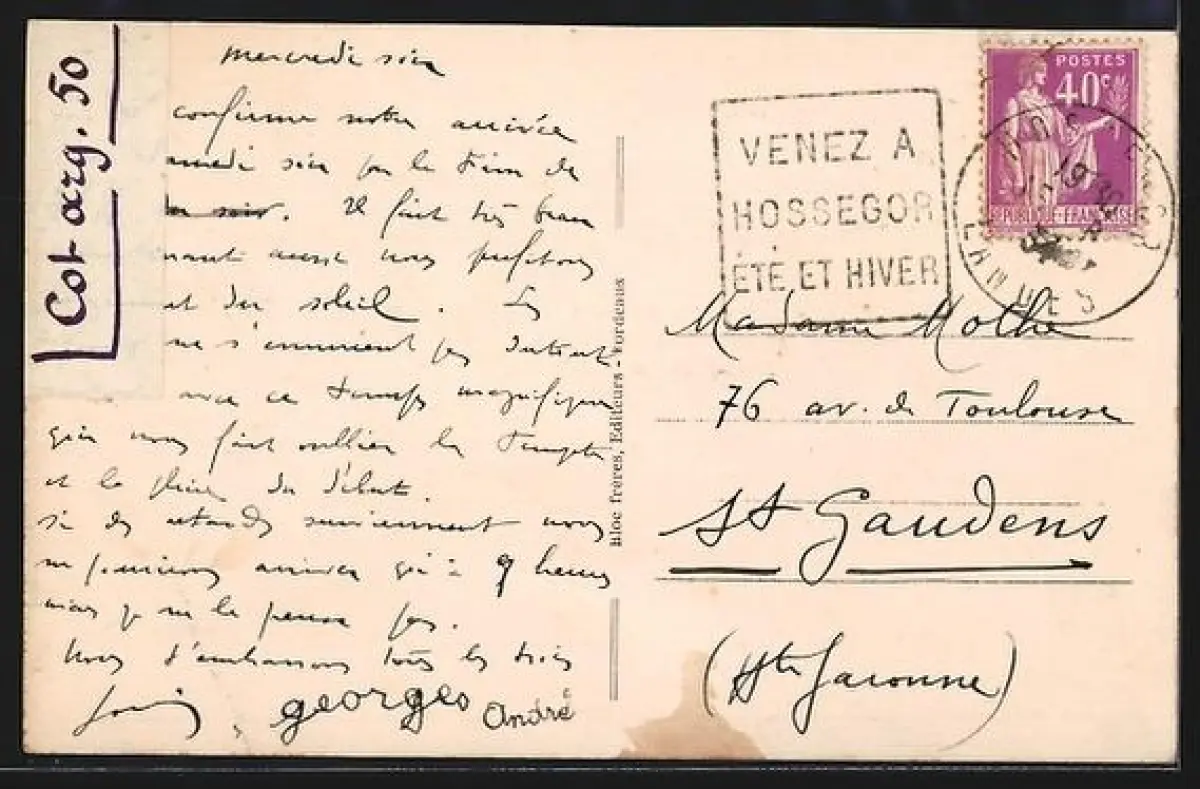 Cot arg. 50
mercredi soir
confirme notre arrivée
medi soir par le train de
. Il fait très beau
nant aussi nous profitons
et du soleil. Les
ne s'ennuient pas
avec ce temps magnifique
qui nous fait oublier la tempête
et la pluie du début.
si des retards surviennent nous
ne pourrions arriver qu'à 9 heures
mais je ne le pense pas.
Nous t'embrassons tous les trois
georges
andré
Bloc frères, Editeurs - Bordeaux
VENEZ A
HOSSEGOR
ÉTÉ ET HIVER
POSTES
40c
REPUBLIQUE-FRANÇAISE
LANDES
Madame Mothe
76 av. de Toulouse
St Gaudens
(Hte Garonne)